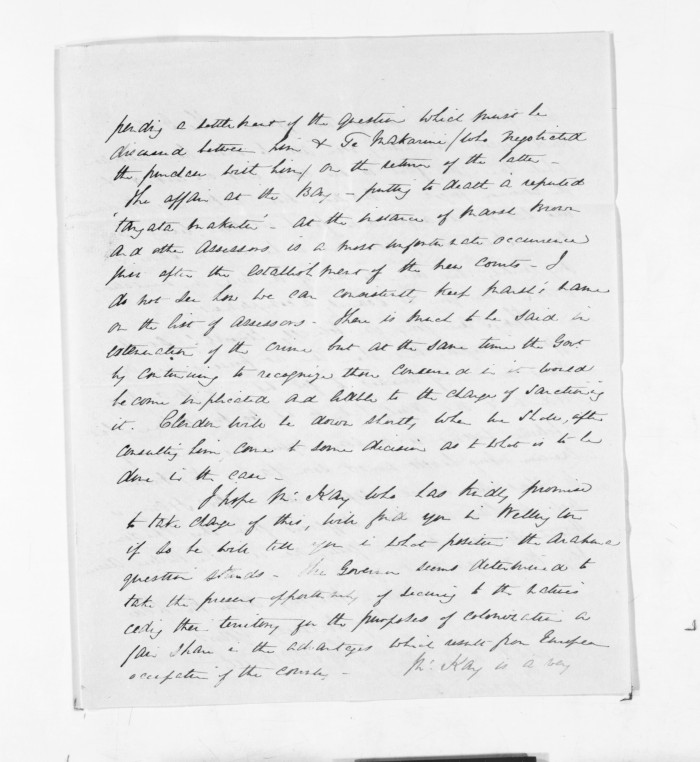 pending a settlement of the question which must be
discussed between him & Te Makarini (who negotiated
the purchase with him) on the return of the latter -
The affair at the Bay - putting to death a reputed
'tangata makutu' - at the instance of Marsh Brown
and other Assessors is a most unfortunate occurrence
just after the establishment of the new Courts - I
do not see how we can consistently keep Marsh's name
on the list of assessors - There is much to be said in
extenuation of the crime but at the same time the Govt.
by continuing to recognize those concerned in it would
become implicated and liable to the charge of sanctioning
it. Clendon will be down shortly, when we shall, after
consulting him, come to some decision as to what is to be
done in the case -
I hope Mr. Kay who has kindly promised
to take charge of this, will find you in Wellington
if so he will tell you in what position the
question stands - The Governor seems determined to
take the present opportunity of securing to the natives
ceding their territory for the purposes of colonization a
fair share in the advantages which result from European
occupation of the country - Mr. Kay is a very